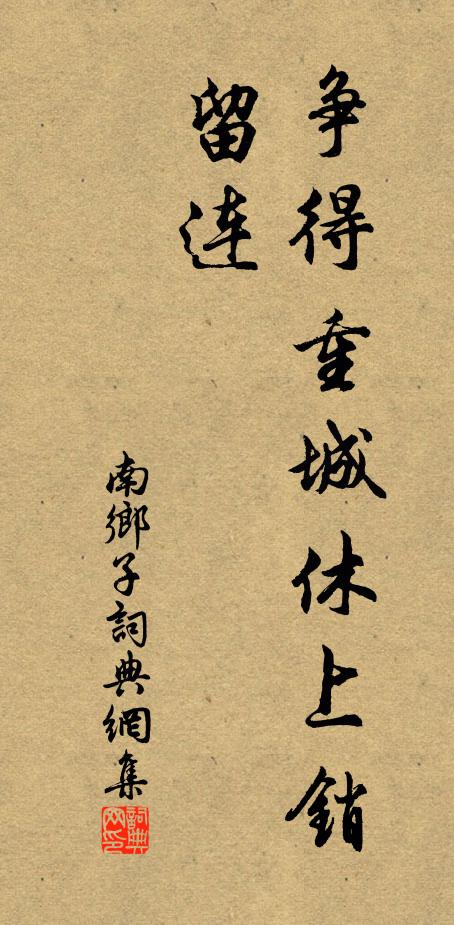 争得重城休上销
留连
南鄉子詞典網集
詞典
网印